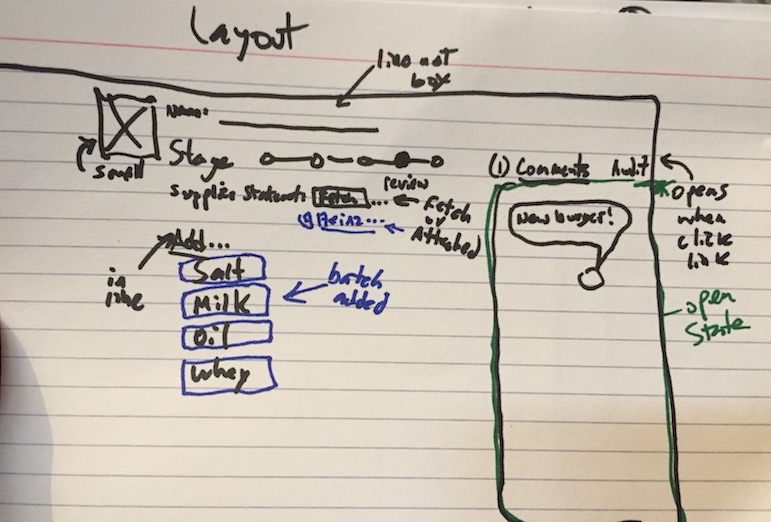 Layout
line not
box
Name:
small
Stage
review
Supplier Statement: Fetch...
Fetch
or
Attached
Add...
in
line
Salt
Milk
Oil
Whey
batch
added
(1) Comments Audit
New burger!
opens
when
click
link
open
State